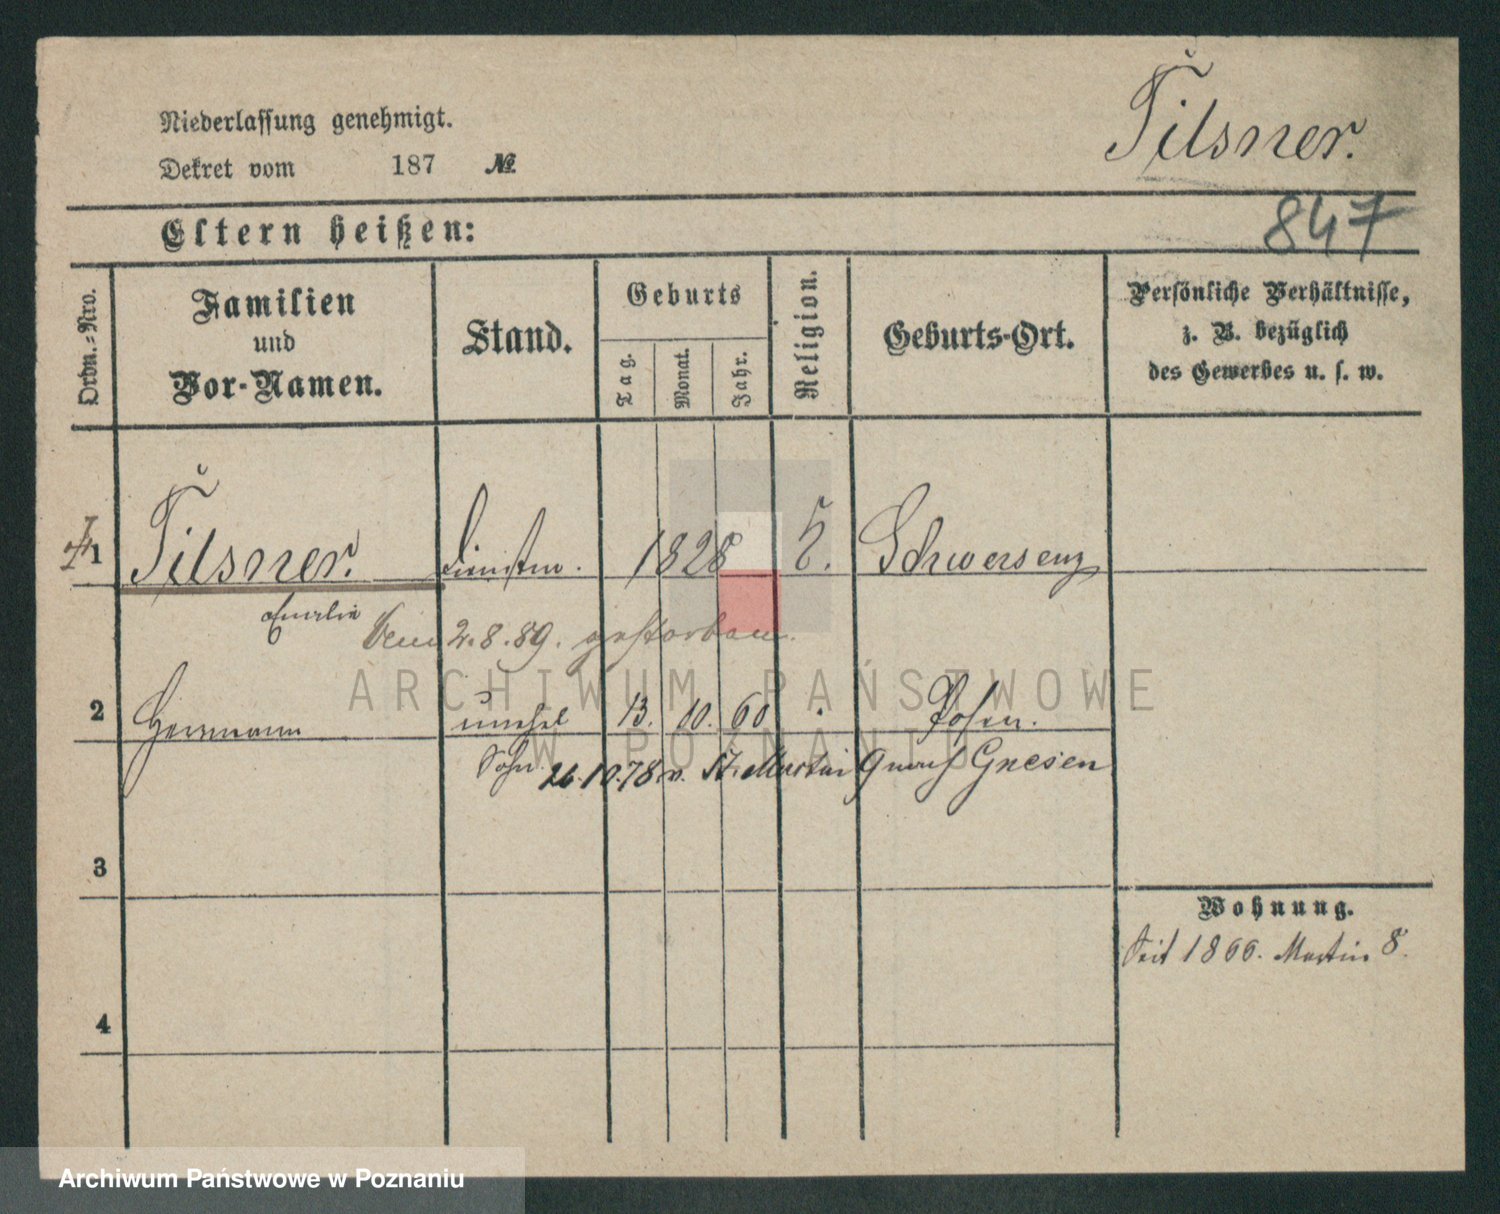 Niederlassung genehmigt.
Tilsner.
Dekret vom 187 №
847
Eltern heißen:
Ordn.-Nro.
Familien
und
Vor-Namen.
Stand.
Geburts
Tag.
Monat.
Jahr.
Religion.
Geburts-Ort.
Persönliche Verhältnisse,
z. B. bezüglich
des Gewerbes u. s. w.
1 Tilsner. 1828 Schwersenz
Emilie
2.8.89. gestorben.
2 Herrmann unehel 13. 10. 60 Posen.
Sohn 26.10.78 v. St. Martin 9 nach Gnesen
3
Wohnung.
Seit 1866. Martin 8.
4
ARCHIWUM PAŃSTWOWE
W POZNANIU
Archiwum Państwowe w Poznaniu